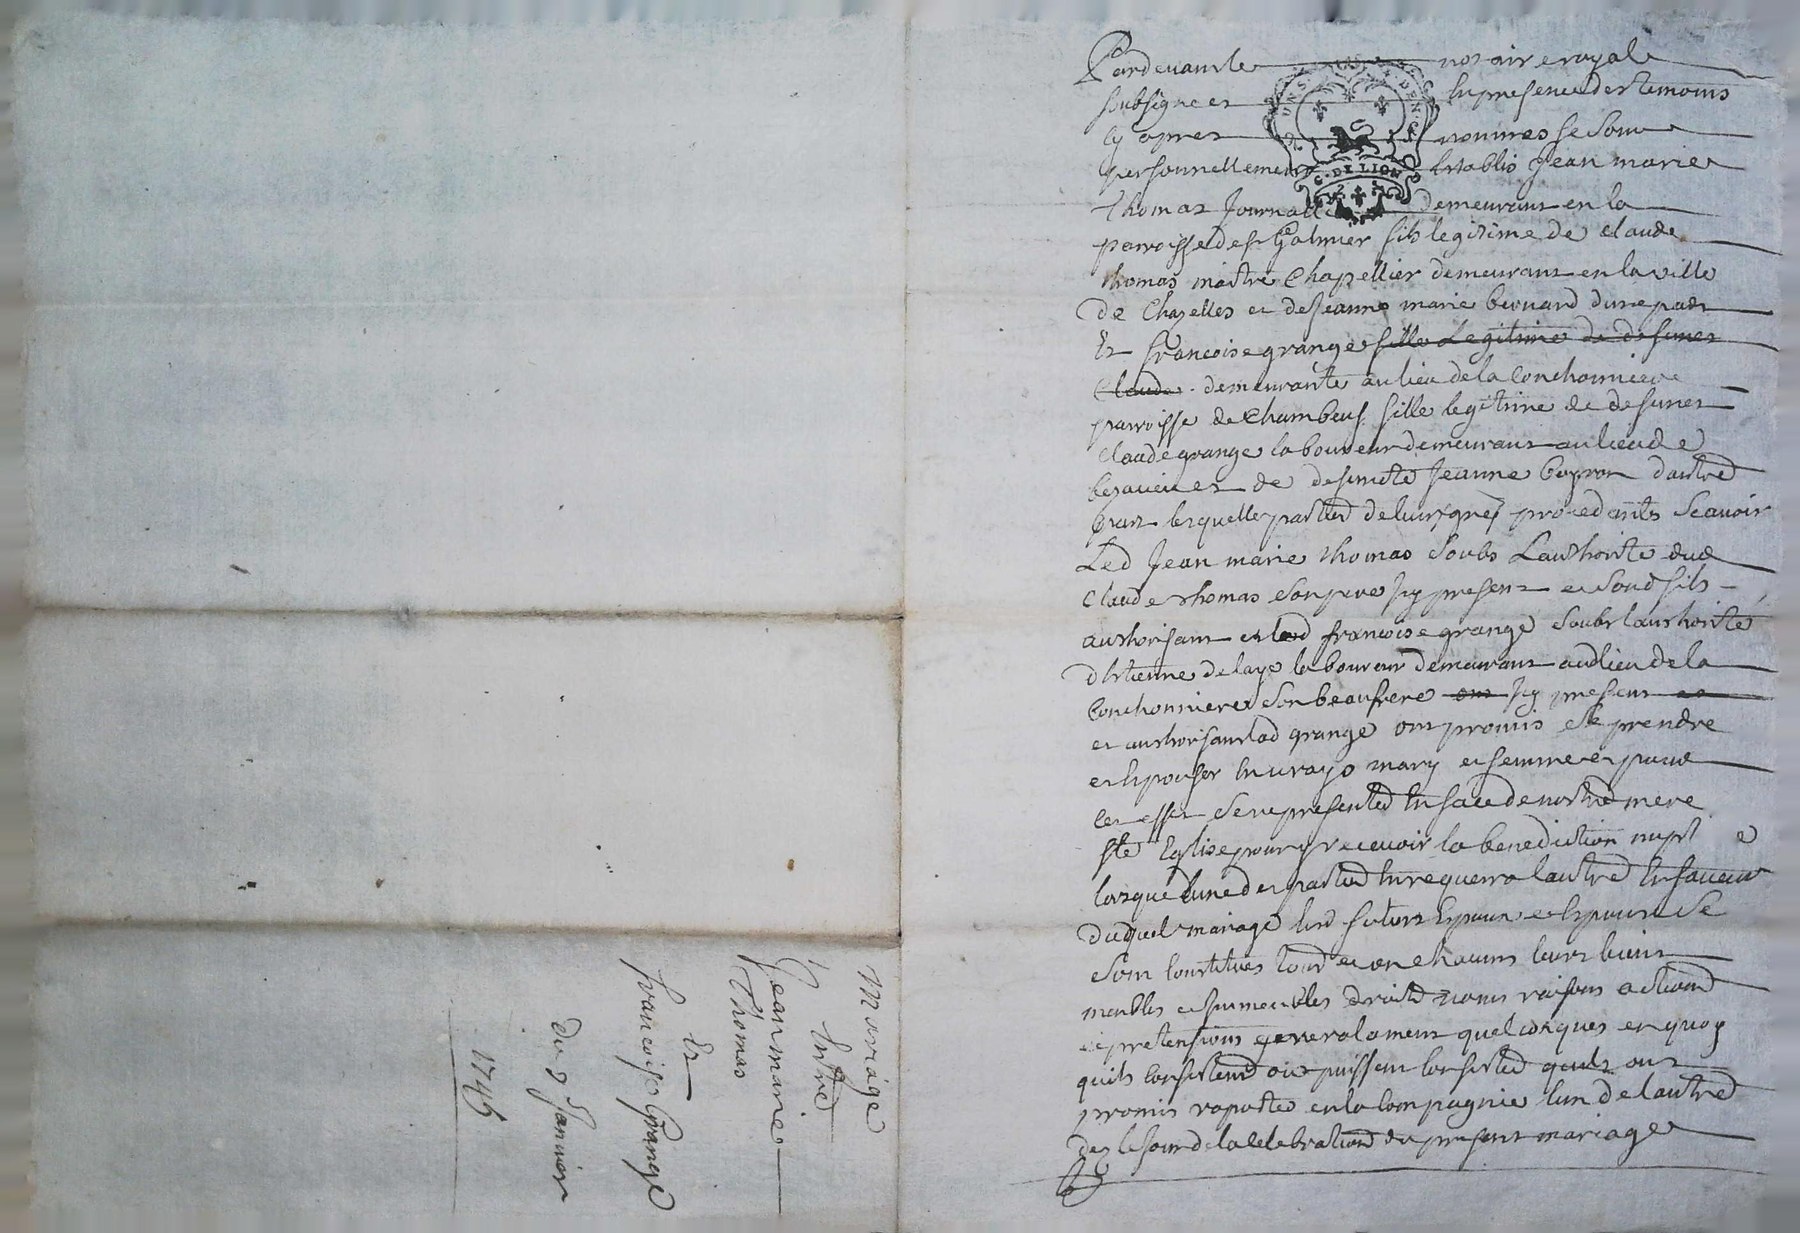 Pardevant le notaire royal
soubsigne et En presence des temoins
cy apres nommes se sont
personnellement Establis Jean marie
thomas Journalier demeurant en la
parroisse de st Galmier fils legitime de claude
thomas maitre Chapellier demeurant en la ville
de Chazelles et de Jeanne marie beouard dune part
Et francoise grange fille Legitime de defunct
Claude demeurante au lieu de la Conchonniere
parroisse de Chambeuf fille legitime de defunct
claude grange laboureur demeurant au lieu de
et de defuncte Jeanne boyron dautre
part lesquelle parties de leurs grez procedants Scavoir
Led Jean marie thomas Soubs Lauthorite dud
claude thomas son pere Icy present et sond fils
authorisant et lad francoise grange Soubs lauthorite
dEtienne delaye laboureur demeurant aud lieu de la
Conchonniere son beaufrere ont Icy present et
et authorisant lad grange ont promis Se prendre
et Epouser En vrays mary et femme et pour
cet effet Se representer En face de nostre mere
ste Eglise pour y recevoir la benediction nupt e
lorsque lune des parties En requerra lautre En faveur
duquel mariage lesd futurs Epoux et Epouse Se
Sont Constitues tous et un chacuns leurs biens
meubles et Immeubles droits noms raisons actions
et pretensions generalement quelconques en quoy
quils Consistent ou puissent Consister quils ont
promis raporter en la Compagnie lun de lautre
des le jour de la Celebration du present mariage
C. DE LION
Marriage
Entre
Jean marie
Thomas
Et
francoise Grange
Du 9 Janvier
1746